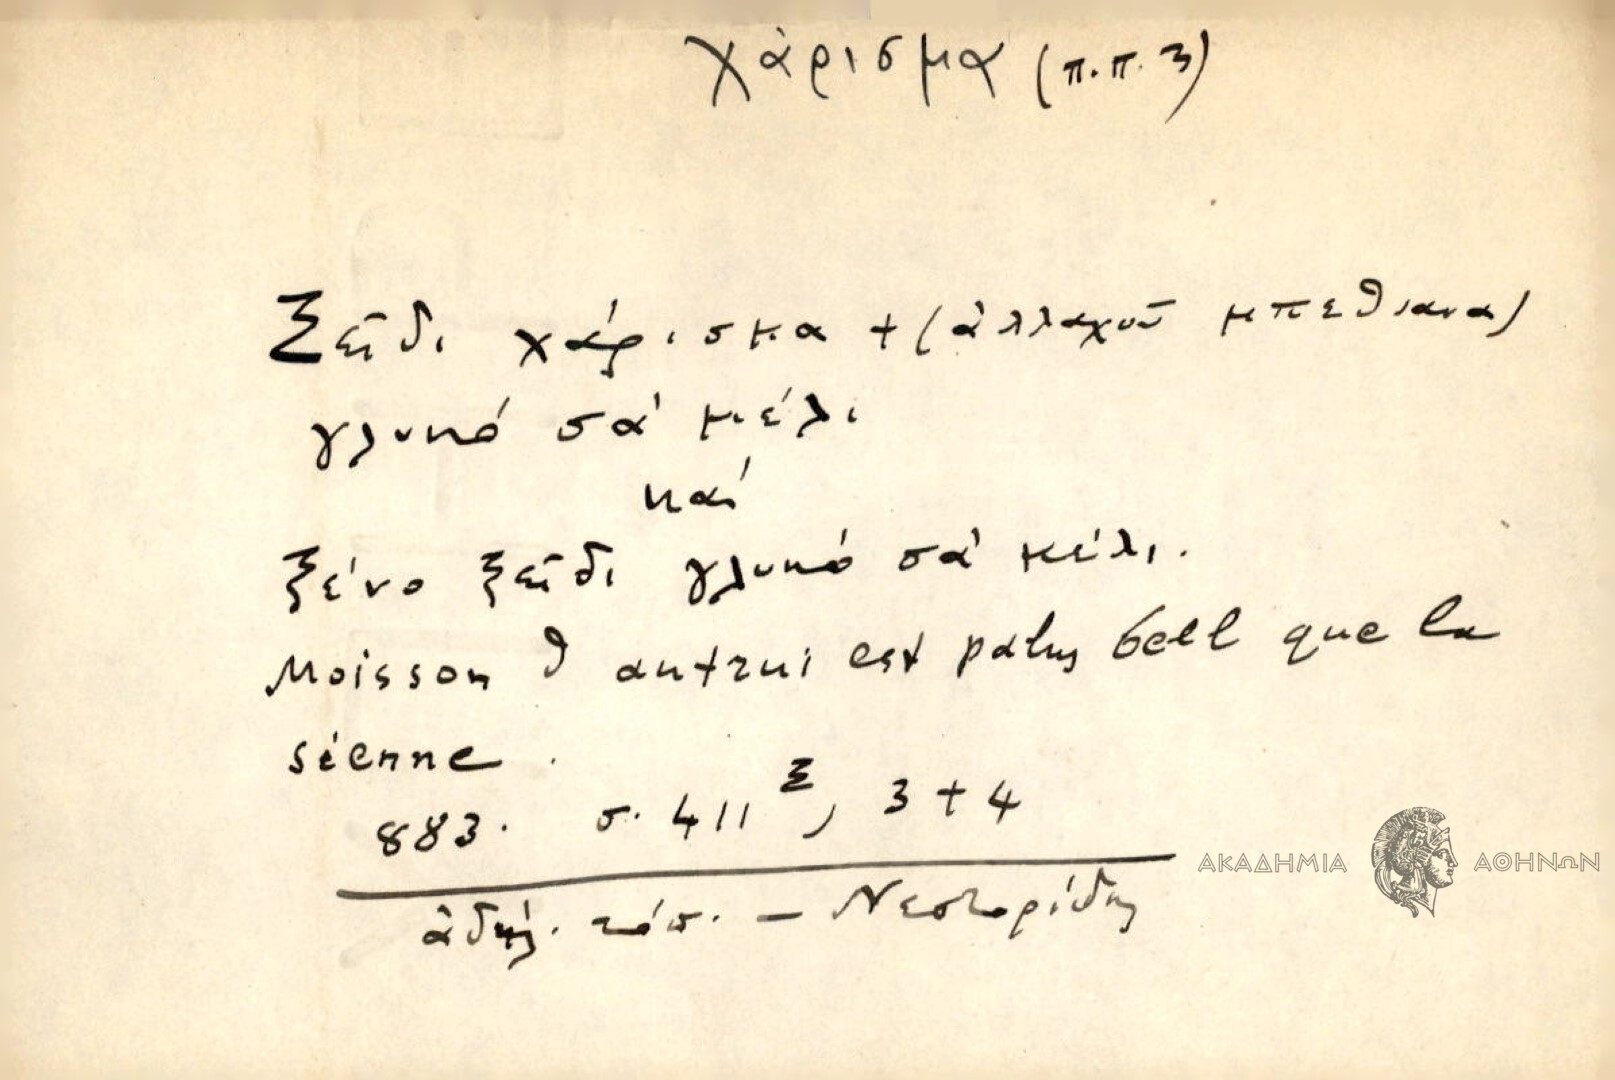 χάρισμα (π.π. 3)
Ξεῖδι χάρισμα + (ἀλλαχοῦ μπεθιανα)
γλυκό σά μέλι
καί
ξένο ξεῖδι γλυκό σά μέλι.
Moisson d autrui est palus bell que la
sienne.
883. σ. 411 Ξ, 3 + 4
ἀδήλ. τόπ. — Νεστορίδης
ΑΚΑΔΗΜΙΑ ΑΘΗΝΩΝ